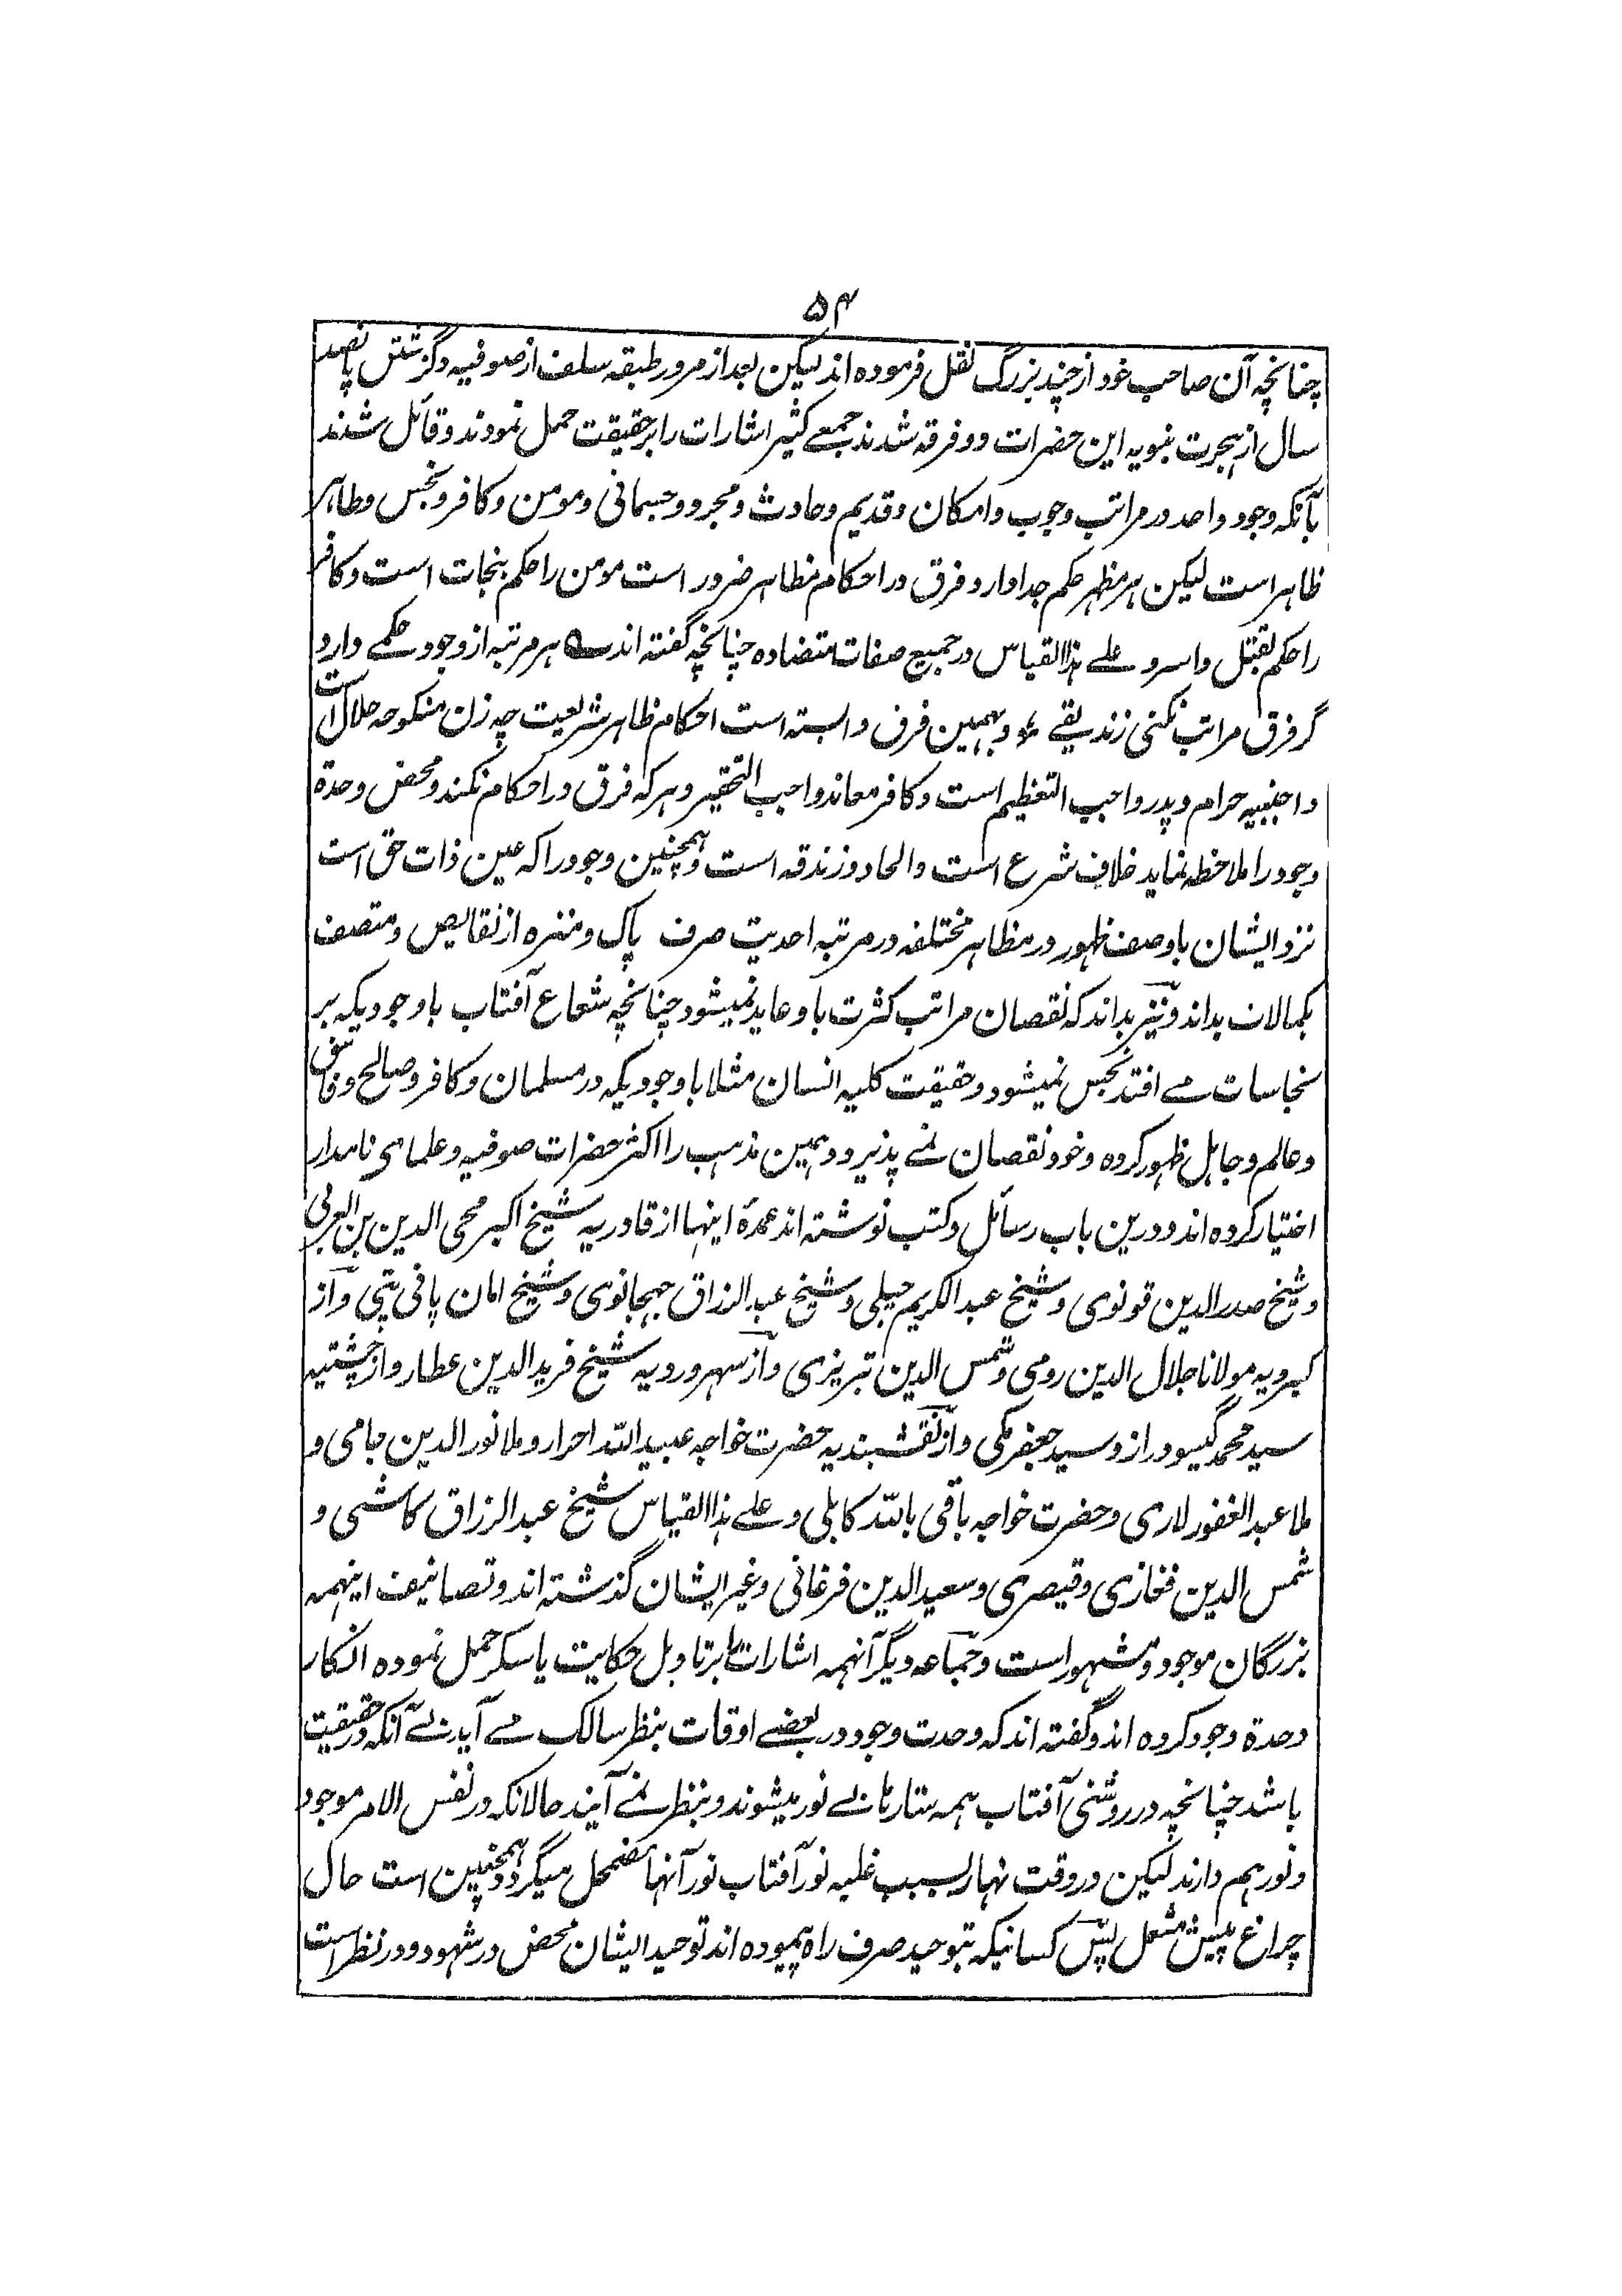 ۵۴
چنانچه آن صاحب خود از چند بزرگ نقل فرموده اند لیکن بعد از مرور طبقه سلف از صوفیه و گزشتن پانصد
سال از هجرت نبویه این حضرات دو فرقه شدند جمعے کثیر اشارات را بر حقیقت حمل نمودند و قائل شدند
بآنکه وجود واحد در مراتب وجوب و امکان و قدیم و حادث و مجرد و جسمانی و مومن و کافر و نجس و طاهر
ظاهر است لیکن هر مظهر حکم جدا دارد و فرق در احکام مظاهر ضرور است مومن را حکم بنجات است و کافر
را حکم بقتل و اسر و علے هذا القیاس در جمیع صفات متضاده چنانچه گفته اند ے هر مرتبه از وجود حکمے دارد
گر فرق مراتب نکنی زندیقے ؏ و بهمین فرق وابسته است احکام ظاهر شریعت چه زن منکوحه حلال است
و اجنبیه حرام و پدر واجب التعظیم است و کافر معاند واجب التحقیر و هر که فرق در احکام نکند و محض وحدة
وجود را ملاحظه نماید خلاف شرع است و الحاد و زندقه است و همچنین وجود را که عین ذات حق است
نزد ایشان با وصف ظهور در مظاهر مختلفه در مرتبه احدیت صرف پاک و منزه از نقایص و متصف
بکمالات بداند و نیز بداند که نقصان مراتب کثرت باو عاید نمیشود چنانچه شعاع آفتاب باوجودیکه بر
نجاسات مے افتد نجس نمیشود و حقیقت کلیه انسان مثلا باوجودیکه در مسلمان و کافر و صالح و فاسق
و عالم و جاهل ظهور کرده و خود نقصان نمے پذیرد و همین مذهب را اکثر حضرات صوفیه و علمای نامدار
اختیار کرده اند و درین باب رسائل و کتب نوشته اند عمدهٔ اینها از قادریه شیخ اکبر محی الدین بن العربی
و شیخ صدر الدین قونوی و شیخ عبد الکریم جیلی و شیخ عبد الرزاق جهجانوی و شیخ امان پانی پتی و از
کبرویه مولانا جلال الدین رومی و شمس الدین تبریزی و از سهروردیه شیخ فرید الدین عطار و از چشتیه
سید محمد گیسو دراز و سید جعفر مکی و از نقشبندیه حضرت خواجه عبید الله احرار و ملا نور الدین جامی و
ملا عبد الغفور لاری و حضرت خواجه باقی بالله کابلی و علے هذا القیاس شیخ عبد الرزاق کاشی و
شمس الدین فغازی و قیصری و سعید الدین فرغانی و غیر ایشان گذشته اند و تصانیف اینهمه
بزرگان موجود و مشهور است و جماعه دیگر آنهمه اشارات را بر تاویل حکایت یا سکر حمل نموده انکار
وحدة وجود کرده اند و گفته اند که وحدت وجود در بعضے اوقات بنظر سالک مے آید بے آنکه در حقیقت
باشد چنانچه در روشنی آفتاب همه ستارها بے نور میشوند و بنظر نمے آیند حالانکه در نفس الامر موجود
و نور هم دارند لیکن در وقت نهار بسبب غلبه نور آفتاب نور آنها مضمحل میگردد و همچنین است حال
چراغ پیش مشعل پس کسانیکه بتوحید صرف راه پیموده اند توحید ایشان محض در شهود و در نظر است